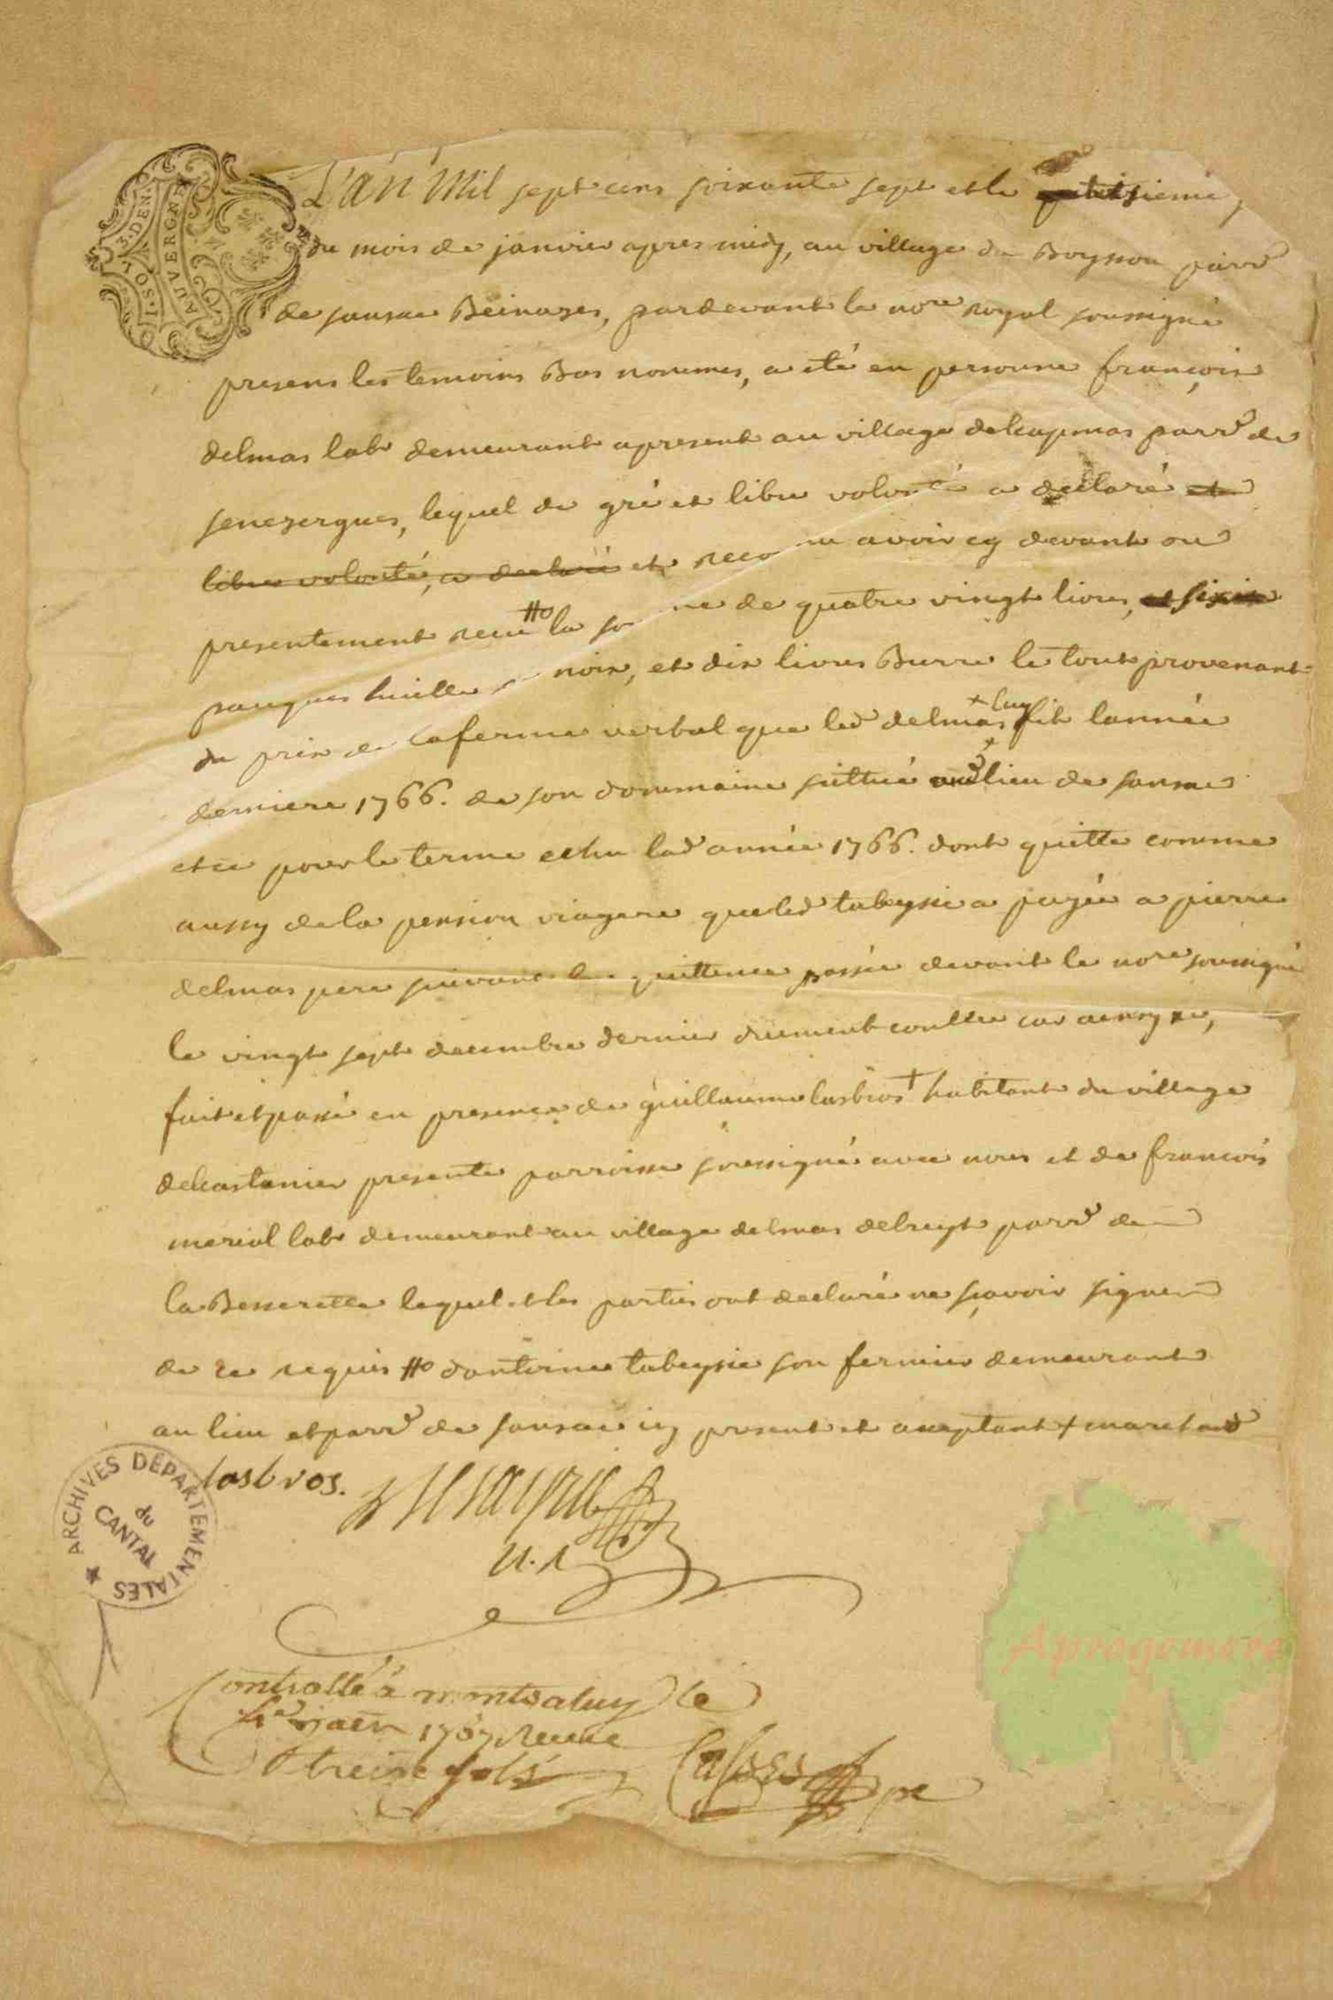 AUVERGNE
3.DEN.
1.SOL
L'an Mil sept cens soixante sept et le troisieme
du mois de janvier apres midy, au village du Boysson parr̃e
de sansac Veinazes, pardevant le no.re royal soussigné
presens les temoins Bas nommes, a eté en personne françois
delmas lab.r demeurant apresent au village delcapmas parr̃e de
senezergues, lequel de gré et libre volonté a declaré et
libre volonté, a declaré et reconnu avoir cy devant ou
presentement receu #o la somme de quatre vingt livres,
huille noix, et dix livres Burre le tout provenant
du prix de la ferme verbal que led delmas + luy fit lannée
derniere 1766. de son dommaine sittué au d lieu de sansac
et ce pour le terme echu lad année 1766. dont quitte comme
aussy de la pension viagere que led tabeysse a payée a pierre
delmas pere suivant la quittence passée devant le no.re soussigné
le vingt sept decembre dernier
fait et passé en presence de guillaume lasbros + habitant du village
delcastanier presente parroisse soussigné avec nous et de francois
meriol lab.r demeurant au village delmas delreyt parr̃e de
la Besserette lequel et les parties ont declaré ne sçavoir signer
de ce requis #o dantoine tabeysse son fermier demeurant
au lieu et parr̃e de sansac icy present et acceptant + marchand
lasbros.
n.r
ARCHIVES DÉPARTEMENTALES du CANTAL
Controllé à montsalvy le
1767 Receu
treize sols
Aprogemere